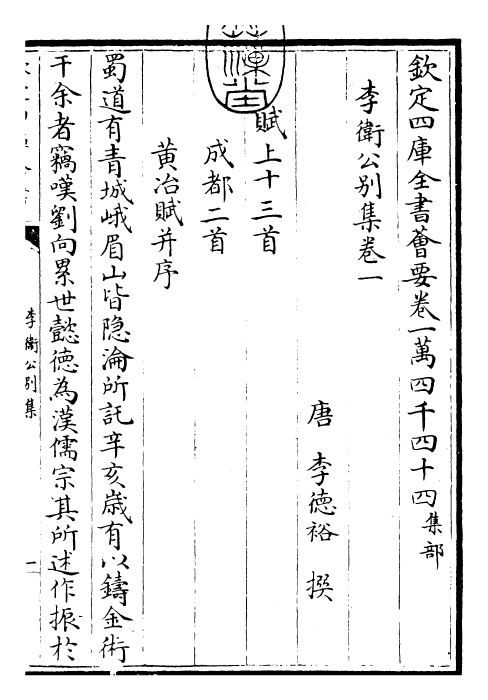 欽定四庫全書薈要卷一萬四千四十四集部
李衛公別集卷一
唐 李德裕 撰
賦上十三首
成都二首
黃冶賦并序
蜀道有青城峨眉山皆隐淪所託辛亥歲有以鑄金術
干余者竊嘆劉向累世懿德為漢儒宗其所述作振於
李衛公別集
一